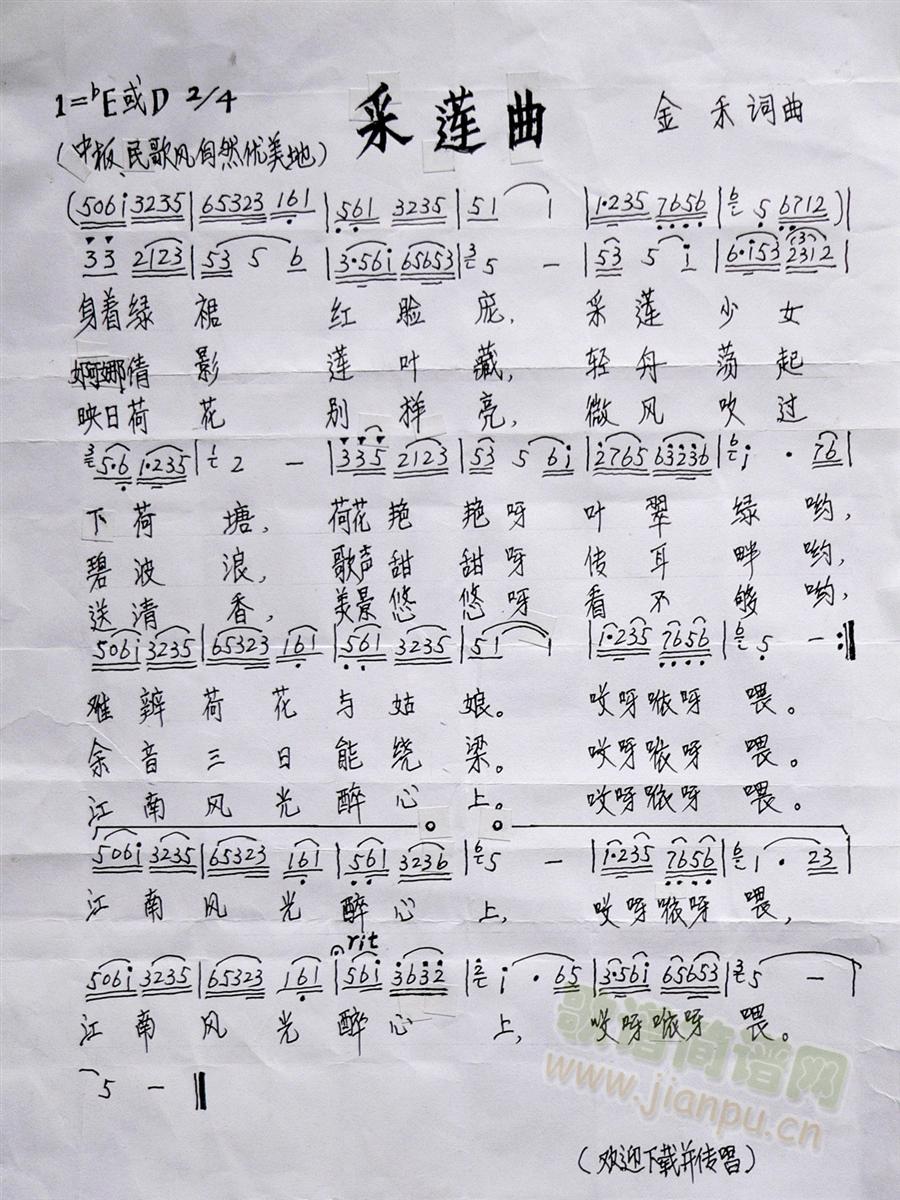 采莲曲
1=♭E或D 2/4
金禾词曲
(中板、民歌风自然优美地)
(506i 3235|65323 161|561 3235|51 1|1·235 7656|6 5 6712)|
33 2123|53 5 6|3·56i 65653|3 5 —|53 5 i|6·i53 2312|
身着绿裙 红脸庞, 采莲少女
婀娜倩影 莲叶藏, 轻舟荡起
映日荷花 别样亮, 微风吹过
3 5·6 1·235|1 2 —|335 2123|53 5 6i|2765 63236|6 i · 76|
下荷塘, 荷花艳艳呀 叶翠绿哟,
碧波浪, 歌声甜甜呀 传耳畔哟,
送清香, 美景悠悠呀 看不够哟,
506i 3235|65323 161|561 3235|51 1|1·235 7656|6 5 — :‖
难辨荷花与姑娘。 哎呀咳呀喂。
余音三日能绕梁。 哎呀咳呀喂。
江南风光醉心上。 哎呀咳呀喂。
506i 3235|65323 161|561 3236|6 5 —|1·235 7656|6 1 · 23|
江南风光醉心上, 哎呀咳呀喂,
rit
506i 3235|65323 161|56i 3632|2 i · 65|3·56i 65653|3 5 —|
江南风光醉心上, 哎呀咳呀喂。
5 — ‖
歌谱简谱网
www.jianpu.cn
(欢迎下载并传唱)